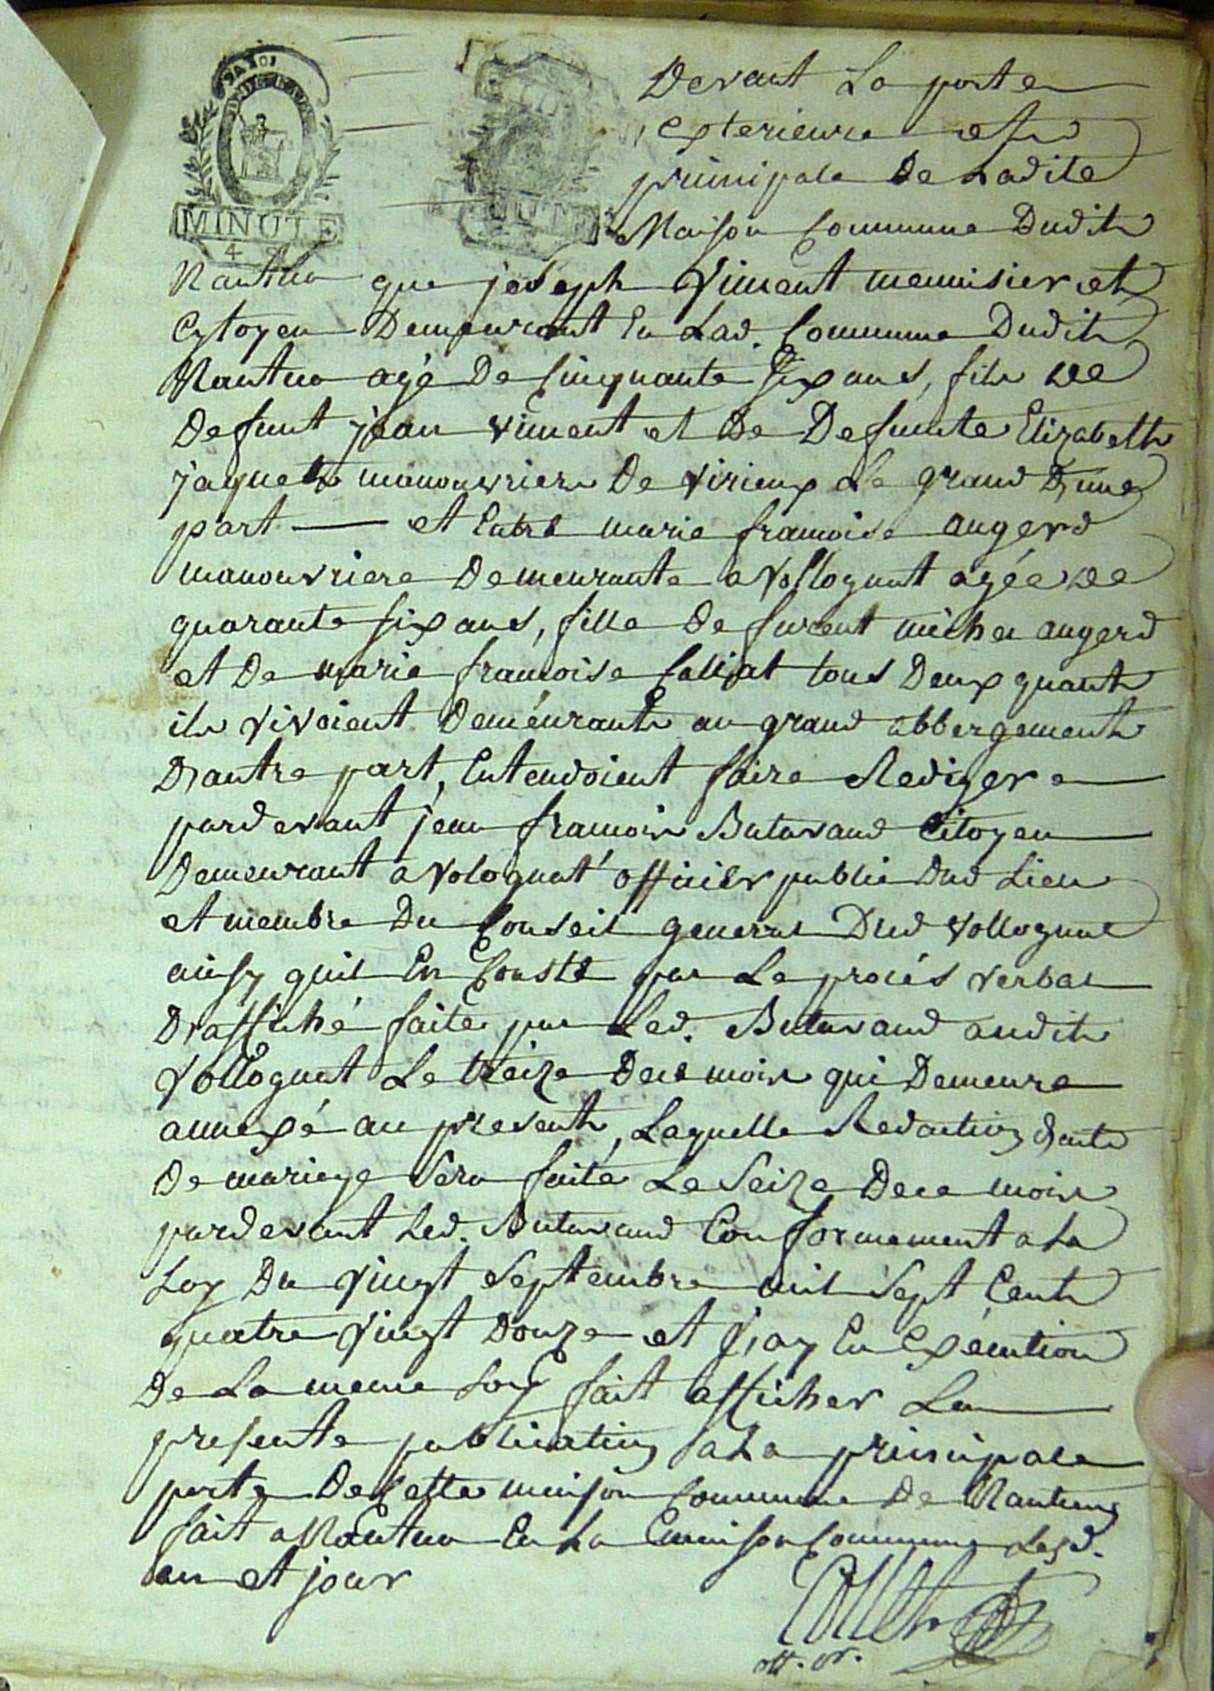 LA LOI
MINUTE
4
Devant La porte
exterieure et
principale de Ladite
Maison Commune Dudit
Nantua que joseph Vincent menuisier et
Cytoyen Demeurant En Lad. Commune Dudit
Nantua agé De Cinquante six ans, fils de
Defunt jean vincent et De Defunte Elizabeth
jaquet manouvriers De virieux Le grand D'une
part — et Entre marie francoise augerd
manouvriere Demeurante a Vollognat agée de
quarante six ans, fille De furent michel augerd
et De marie francoise Calliat tous Deux quant
ils vivoient Demeurants au grand abbergement
D'autre part, Entendoient faire Rediger
pardevant jean francois Butavand Citoyen
Demeurant a Volognat officier public Dud Lieu
et membre Du Conseil general Dud Vollognat
ainsy quil En Conste par Le procés verbal
D'affiché faite par Led. Butavand audit
Vollognat Le treize De ce mois qui Demeure
annexé au present, Laquelle Redaction d'acte
De mariage sera faite Le Seize De ce mois
pardevant Led. Butavand Conformement a La
Loy Du Vingt Septembre mil Sept Cent
quatre Vingt Douze et j'ay En Exécution
De La meme Loy fait afficher La
presente publication a La principale
porte De Cette maison Commune De Nantua
fait a Nantua En La maison Commune Lesd.
an et jour
off. er.